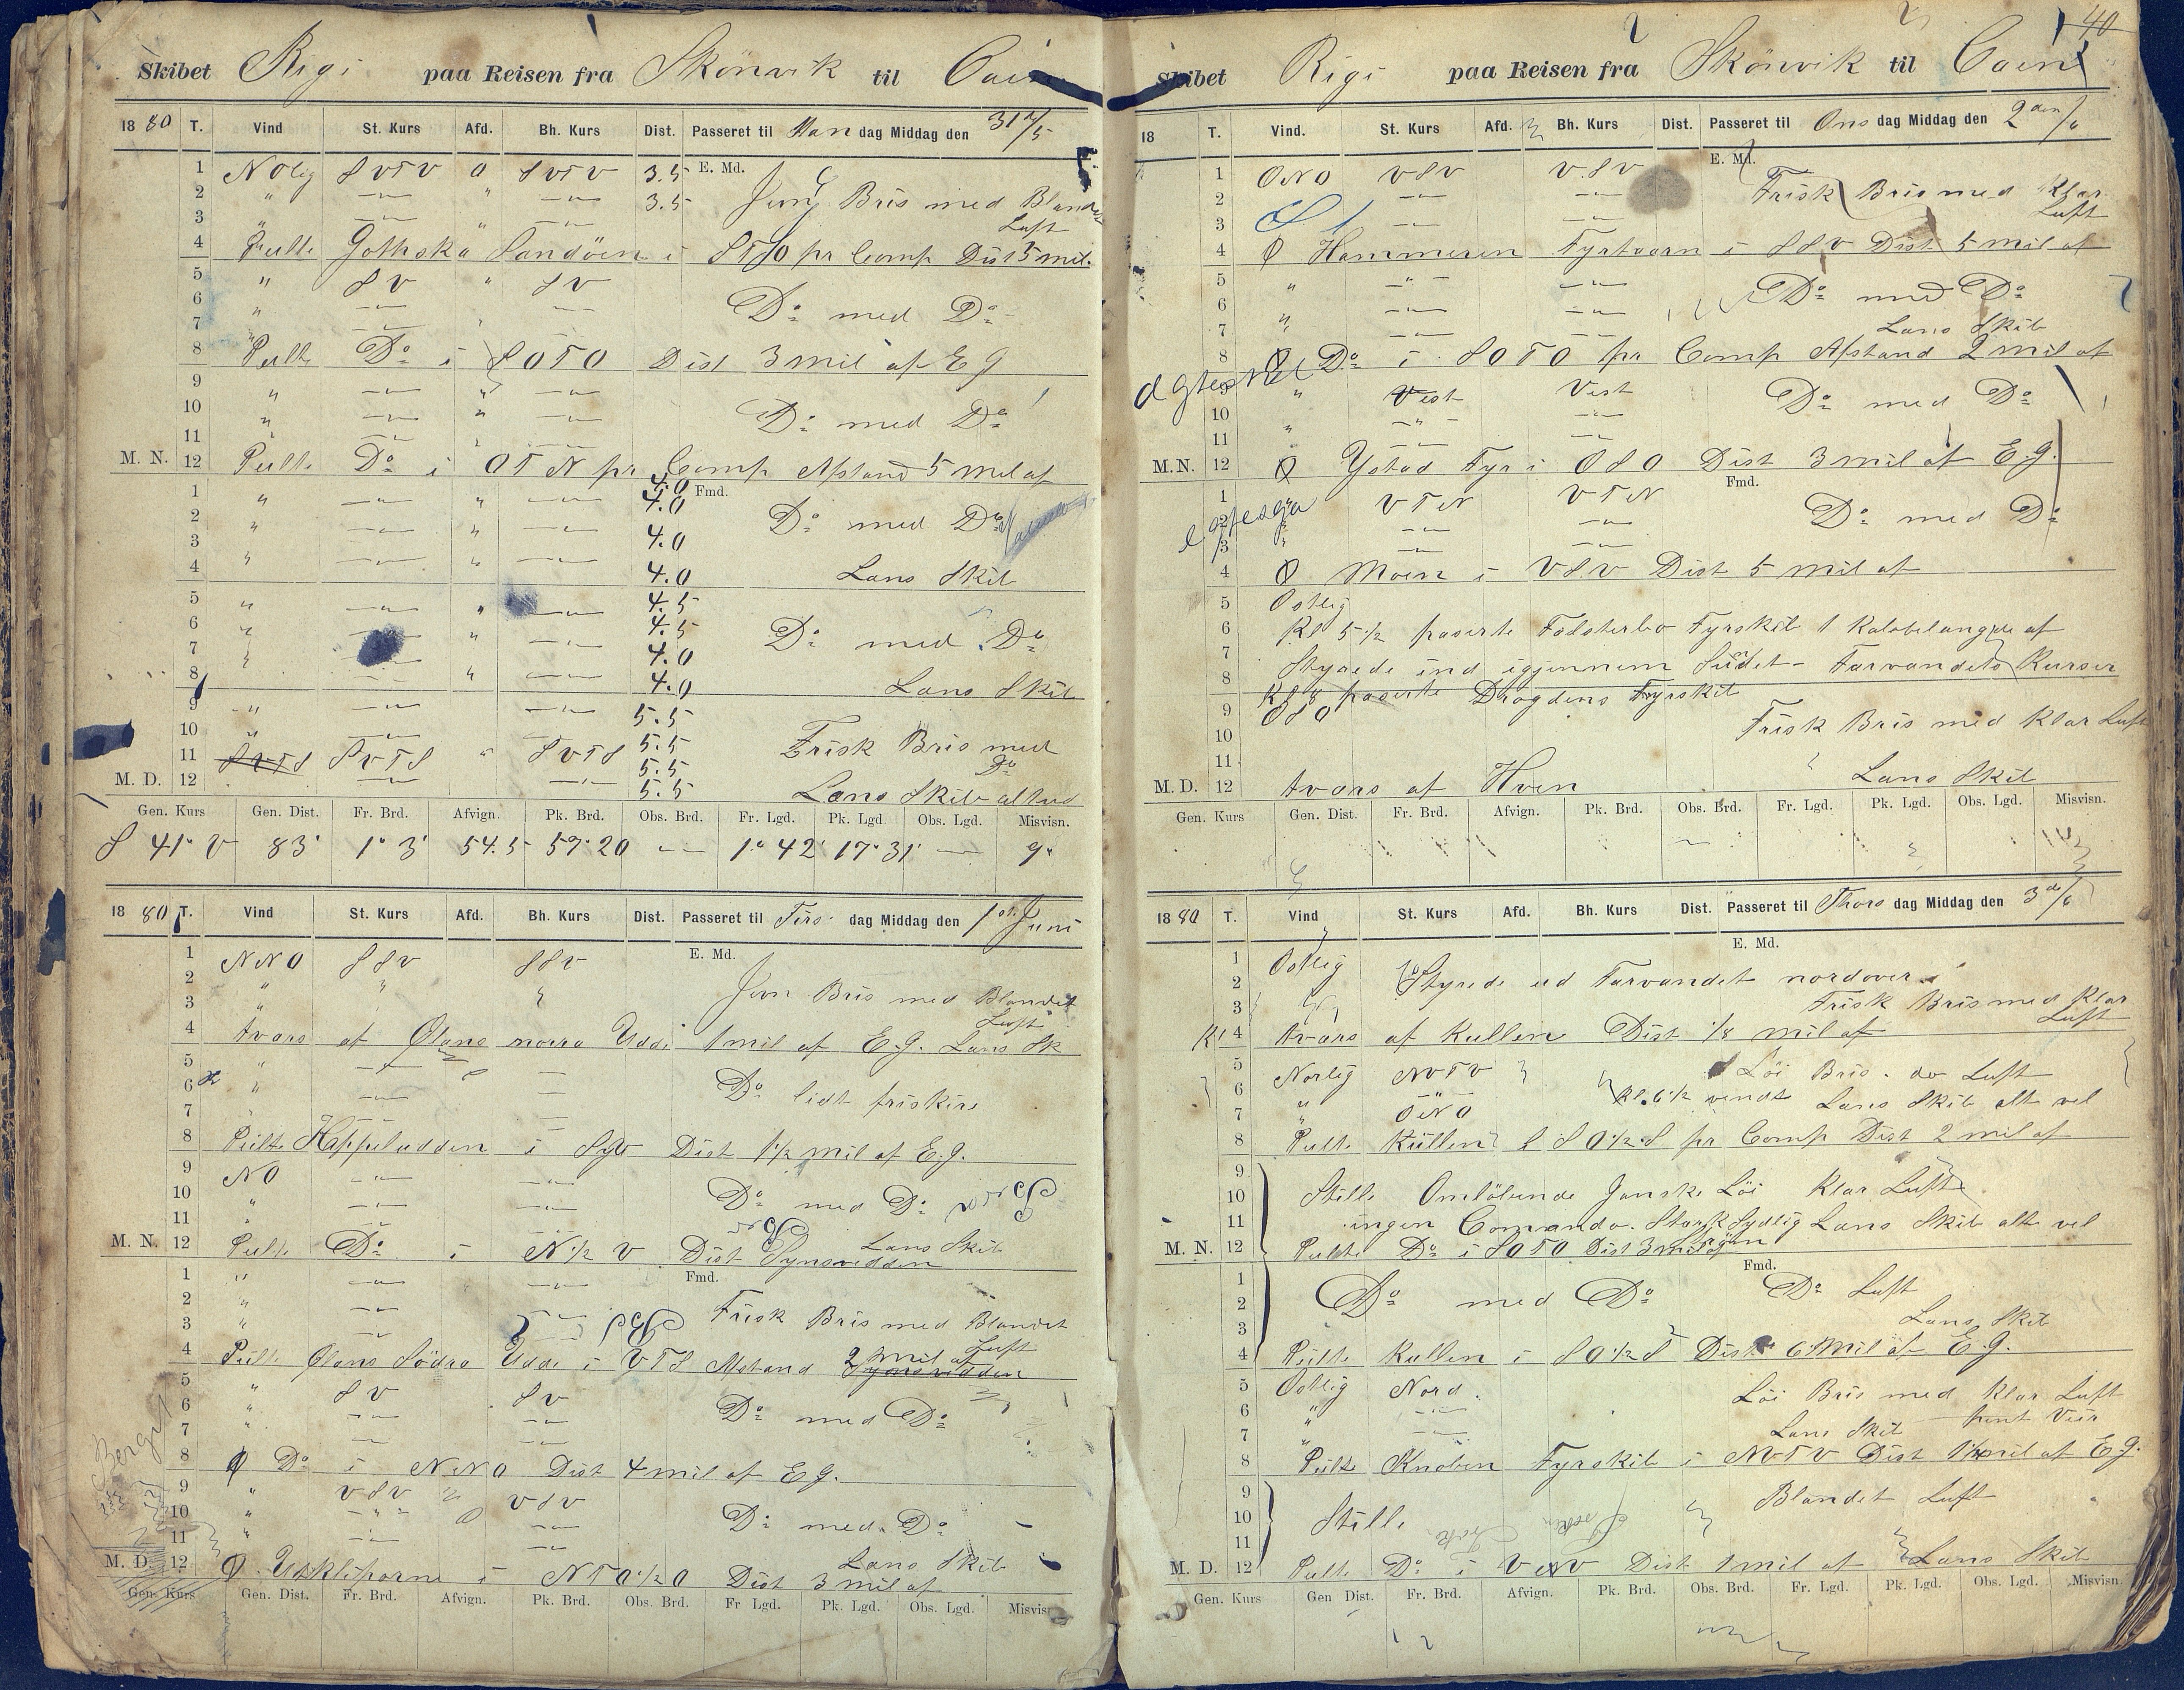 Skibet Rigi paa Reisen fra Skönvik til Caen
1880 T. Vind St. Kurs Afd. Bh. Kurs Dist. Passeret til Man dag Middag den 31te/5
1 NOlig SVTV 0 SVTV 3.5 E. Md.
2 " " 3.5 Jevn Bris med Blandet
3 " " Luft
4 Peilte Gothska Sandöen i STO pr Comp Dist 5 mil.
5 " SV " SV
6 " Do med Do
7
8 Peilte Do i SOTO Dist 3 mil af EG
9 " "
10 " " Do med Do
11
M. N. 12 Peilte Do i OTN pr Comp Afstand 5 mil af
4.0
1 " " 4.0 Fmd.
2 " " Do med Do
3 4.0
4 " " 4.0 Lens Skib
5 " " 4.5
6 " " 4.5 Do med Do
7 4.0
8 " 4.0 Lens Skib
9 " 5.5
10 " 5.5 Frisk Bris med
11 SVTS SVTS " SVTS 5.5 Do
M. D. 12 5.5 Lens Skib altud
Gen. Kurs Gen. Dist. Fr. Brd. Afvign. Pk. Brd. Obs. Brd. Fr. Lgd. Pk. Lgd Obs. Lgd. Misvisn.
S 41° V 83' 1° 3' 54.5 57° 20 — 1° 42' 17° 31' — 9°
1880 T. Vind St. Kurs Afd. Bh. Kurs Dist. Passeret til Tirs dag Middag den 1st. Juni
1 NNO SSV SSV E. Md.
2 " " " Jevn Bris med Blandet
3 " Luft
4 tvars af Ölans norra Udde 1 mil af E.G. Lens Sk
5 "
6 " Do lidt friskere
7
8 Peilte Kappeludden i Dist 1 1/2 mil af E.G.
9 NO
10 " Do med Do
11
M. N. 12 Peilte Do i N 1/2 V Dist Synsvidden Lens Skib
1 " Fmd.
2 "
3 " Frisk Bris med Blandet
4 Peilte Ölans Södra Udde i VTS Afstand 2 mil af Luft
Synsvidden
5 " SV SV
6 " Do med Do
7 "
8 Φ Do i NNO Dist 4 mil af EG.
9 " VSV VSV
10 " Do med Do
11 "
M. D. 12 Φ Utklipporne i NTO 1/2 O Dist 3 mil af Lens Skib
Gen. Kurs Gen. Dist. Fr. Brd. Afvign. Pk. Brd. Obs. Brd. Fr Lgd. Pk. Lgd. Obs. Lgd. Misvisn
Bergs
40
Skibet Rigi paa Reisen fra Skönvik til Caen
18 T. Vind. St. Kurs Afd. Bh. Kurs Dist. Passeret til Ons dag Middag den 2den/6
1 ONO VSV VSV E. Md.
2 Frisk Bris med Klar
3 Luft
4 Φ Hammeren Fyrtaarn i SSV Dist 5 mil af
5 "
6 " Do med Do
7 " Lens Skib
8 Φ Do i SOTO pr Comp Afstand 2 mil af
9 " Vest Vest
10 " " Do med Do
11
M.N. 12 Φ Ystad Fyr i OSO Dist 3 mil af E.G.
1 VTN VTN Fmd.
2 Do med Do
3
4 Φ Moen i VSV Dist 5 mil af
5 Ostlig
6 Kl 5 1/2 paserte Falsterbo Fyrskib 1 Kabbelangde af
7 Styrede ind igjennem Sundet - Farvandets Kurser
8 Kl 8 paserte Drogdens Fyrskib
9 OSO
10 Frisk Bris med Klar Luft
11
M. D. 12 tvars af Hven Lens Skib
Gen. Kurs Gen. Dist. Fr. Brd. Afvign. Pk. Brd. Obs. Brd. Fr. Lgd. Pk. Lgd. Obs. Lgd. Misvisn.
1880 T. Vind St. Kurs Afd. Bh. Kurs Dist. Passeret til Thors dag Middag den 3de/6
E. Md.
1 Ostlig
2 Styrede ud Farvandet nordover
3 Frisk Bris med Klar
Kl 4 tvars af Kullen Dist 1/8 mil af Luft
5 Norlig NVTV Löi Bris do Luft
6 " " Kl. 6 1/2 vendt
7 " ONO Lens Skib alt vel
8 Peilte Kullen i SO 1/2 S pr Comp Dist 2 mil af
9
10 Stille Omlöbende Ganske Löi Klar Luft
11 ingen Comando. Stærk Sydlig Lens Skib alt vel
Ström
M. N. 12 Peilte Do i SOTO Dist 3 mil
Fmd.
1 Do med Do Do Luft
2
3 Lens Skib
4 Peilte Kullen i SO 1/2 S Dist 6 mil af E.G.
5 Ostlig Nord Löi Bris med Klar Luft
6 " pent Veir
7 " Lens Skib
8 Peilte Knoben Fyrskib i NVTV Dist 1 1/2 mil af EG.
9 Blandet Luft
10 Stille
11
M. D. 12 Peilte Do i VNV Dist 1 mil af Lens Skib
Gen. Kurs Gen Dist. Fr. Brd. Afvign. Pk. Brd. Obs. Brd. Fr. Lgd. Pk. Lgd. Obs. Lgd. Misvisn.